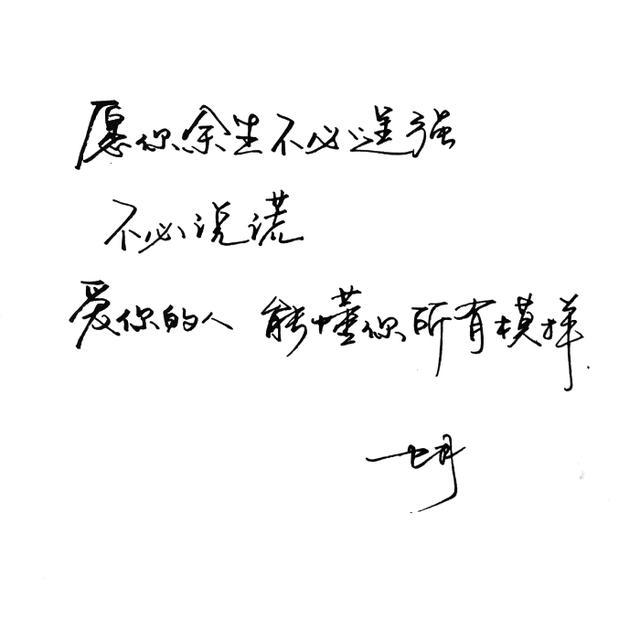 愿你余生不必逞强
不必说谎
爱你的人 能懂你所有模样.
七月